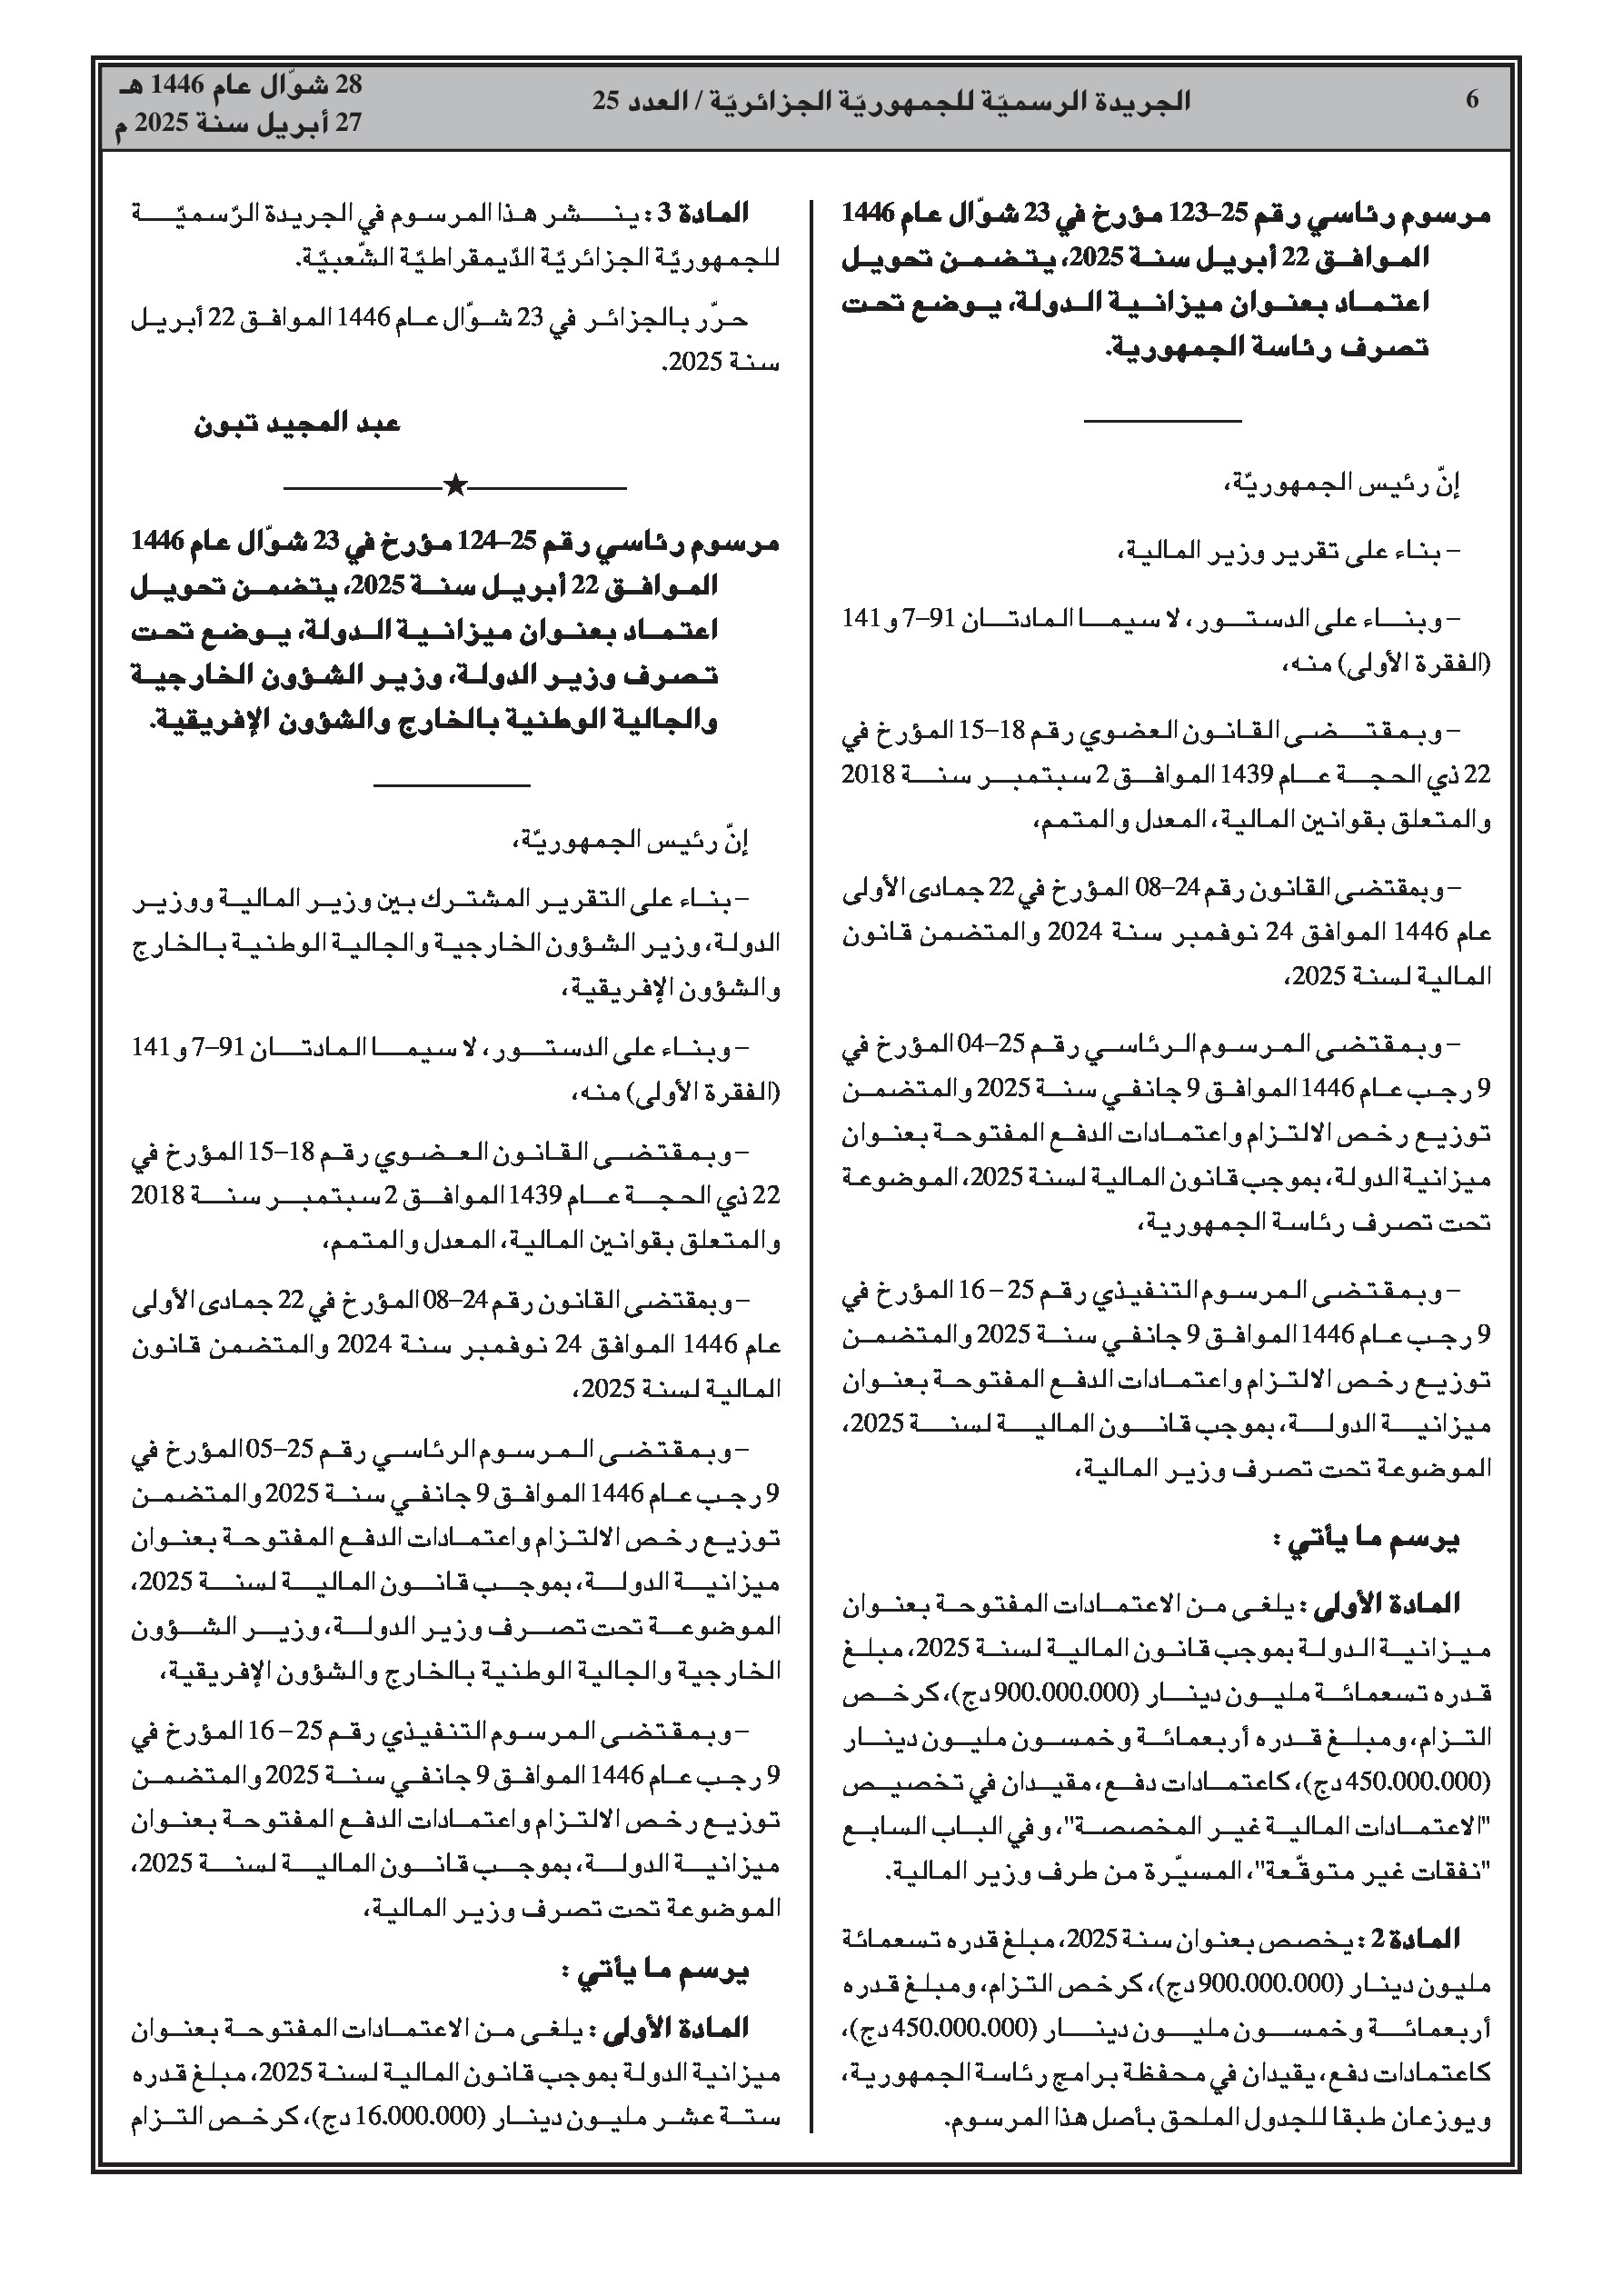 6
الجريدة الرسميّة للجمهوريّة الجزائريّة / العدد 25
28 شوّال عام 1446 هـ
27 أبريل سنة 2025 م
مرسوم رئاسي رقم 25–123 مؤرخ في 23 شوّال عام 1446
الموافق 22 أبريل سنة 2025، يتضمن تحويل
اعتماد بعنوان ميزانية الدولة، يوضع تحت
تصرف رئاسة الجمهورية.
إنّ رئيس الجمهوريّة،
– بناء على تقرير وزير المالية،
– وبناء على الدستور، لا سيما المادتان 91–7 و 141
(الفقرة الأولى) منه،
– وبمقتضى القانون العضوي رقم 18–15 المؤرخ في
22 ذي الحجة عام 1439 الموافق 2 سبتمبر سنة 2018
والمتعلق بقوانين المالية، المعدل والمتمم،
– وبمقتضى القانون رقم 24–08 المؤرخ في 22 جمادى الأولى
عام 1446 الموافق 24 نوفمبر سنة 2024 والمتضمن قانون
المالية لسنة 2025،
– وبمقتضى المرسوم الرئاسي رقم 25–04 المؤرخ في
9 رجب عام 1446 الموافق 9 جانفي سنة 2025 والمتضمن
توزيع رخص الالتزام واعتمادات الدفع المفتوحة بعنوان
ميزانية الدولة، بموجب قانون المالية لسنة 2025، الموضوعة
تحت تصرف رئاسة الجمهورية،
– وبمقتضى المرسوم التنفيذي رقم 25 – 16 المؤرخ في
9 رجب عام 1446 الموافق 9 جانفي سنة 2025 والمتضمن
توزيع رخص الالتزام واعتمادات الدفع المفتوحة بعنوان
ميزانية الدولة، بموجب قانون المالية لسنة 2025،
الموضوعة تحت تصرف وزير المالية،
يرسم ما يأتي :
المادة الأولى : يلغى من الاعتمادات المفتوحة بعنوان
ميزانية الدولة بموجب قانون المالية لسنة 2025، مبلغ
قدره تسعمائة مليون دينار (900.000.000 دج)، كرخص
التزام، ومبلغ قدره أربعمائة وخمسون مليون دينار
(450.000.000 دج)، كاعتمادات دفع، مقيدان في تخصيص
"الاعتمادات المالية غير المخصصة"، وفي الباب السابع
"نفقات غير متوقّعة"، المسيّرة من طرف وزير المالية.
المادة 2 : يخصص بعنوان سنة 2025، مبلغ قدره تسعمائة
مليون دينار (900.000.000 دج)، كرخص التزام، ومبلغ قدره
أربعمائة وخمسون مليون دينار (450.000.000 دج)،
كاعتمادات دفع، يقيدان في محفظة برامج رئاسة الجمهورية،
ويوزعان طبقا للجدول الملحق بأصل هذا المرسوم.
المادة 3 : ينشر هذا المرسوم في الجريدة الرّسميّة
للجمهوريّة الجزائريّة الدّيمقراطيّة الشّعبيّة.
حرّر بالجزائر في 23 شوّال عام 1446 الموافق 22 أبريل
سنة 2025.
عبد المجيد تبون
مرسوم رئاسي رقم 25–124 مؤرخ في 23 شوّال عام 1446
الموافق 22 أبريل سنة 2025، يتضمن تحويل
اعتماد بعنوان ميزانية الدولة، يوضع تحت
تصرف وزير الدولة، وزير الشؤون الخارجية
والجالية الوطنية بالخارج والشؤون الإفريقية.
إنّ رئيس الجمهوريّة،
– بناء على التقرير المشترك بين وزير المالية ووزير
الدولة، وزير الشؤون الخارجية والجالية الوطنية بالخارج
والشؤون الإفريقية،
– وبناء على الدستور، لا سيما المادتان 91–7 و 141
(الفقرة الأولى) منه،
– وبمقتضى القانون العضوي رقم 18–15 المؤرخ في
22 ذي الحجة عام 1439 الموافق 2 سبتمبر سنة 2018
والمتعلق بقوانين المالية، المعدل والمتمم،
– وبمقتضى القانون رقم 24–08 المؤرخ في 22 جمادى الأولى
عام 1446 الموافق 24 نوفمبر سنة 2024 والمتضمن قانون
المالية لسنة 2025،
– وبمقتضى المرسوم الرئاسي رقم 25–05 المؤرخ في
9 رجب عام 1446 الموافق 9 جانفي سنة 2025 والمتضمن
توزيع رخص الالتزام واعتمادات الدفع المفتوحة بعنوان
ميزانية الدولة، بموجب قانون المالية لسنة 2025،
الموضوعة تحت تصرف وزير الدولة، وزير الشؤون
الخارجية والجالية الوطنية بالخارج والشؤون الإفريقية،
– وبمقتضى المرسوم التنفيذي رقم 25 – 16 المؤرخ في
9 رجب عام 1446 الموافق 9 جانفي سنة 2025 والمتضمن
توزيع رخص الالتزام واعتمادات الدفع المفتوحة بعنوان
ميزانية الدولة، بموجب قانون المالية لسنة 2025،
الموضوعة تحت تصرف وزير المالية،
يرسم ما يأتي :
المادة الأولى : يلغى من الاعتمادات المفتوحة بعنوان
ميزانية الدولة بموجب قانون المالية لسنة 2025، مبلغ قدره
ستة عشر مليون دينار (16.000.000 دج)، كرخص التزام